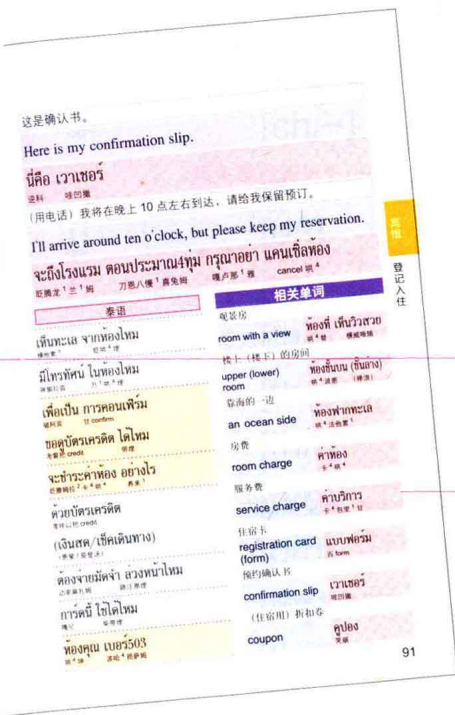 这是确认书。
Here is my confirmation slip.
นี่คือ เวาเชอร์
逆科 哇凹撤
(用电话) 我将在晚上 10 点左右到达, 请给我保留预订。
I'll arrive around ten o'clock, but please keep my reservation.
จะถึงโรงแรม ตอนประมาณ4ทุ่ม กรุณาอย่า แคนเซิ่ลห้อง
眨腾龙¹兰¹姆 刀恩八慢¹喜兔姆 嘎卢那¹雅 cancel 哄⁴
宾馆
登记入住
泰语
เห็นทะเล จากห้องไหม
มีโทรทัศน์ ในห้องไหม
เพื่อเป็น การคอนเฟิร์ม
confirm
ขอดูบัตรเครดิต ได้ไหม
credit
จะชำระค่าห้อง อย่างไร
ด้วยบัตรเครดิต
credit
(เงินสด/เช็คเดินทาง)
ต้องจ่ายมัดจำ ล่วงหน้าไหม
การ์ดนี้ ใช้ได้ไหม
ห้องคุณ เบอร์503
相关单词
观景房
room with a view ห้องที่ เห็นวิวสวย
楼上 (楼下) 的房间
upper (lower) room ห้องชั้นบน (ชั้นล่าง)
靠海的一边
an ocean side ห้องฟากทะเล
房费
room charge ค่าห้อง
卡⁴哄⁴
服务费
service charge ค่าบริการ
住宿卡
registration card (form) แบบฟอร์ม
form
预约确认书
confirmation slip เวาเชอร์
哇凹撤
(住宿用) 折扣券
coupon คูปอง
91